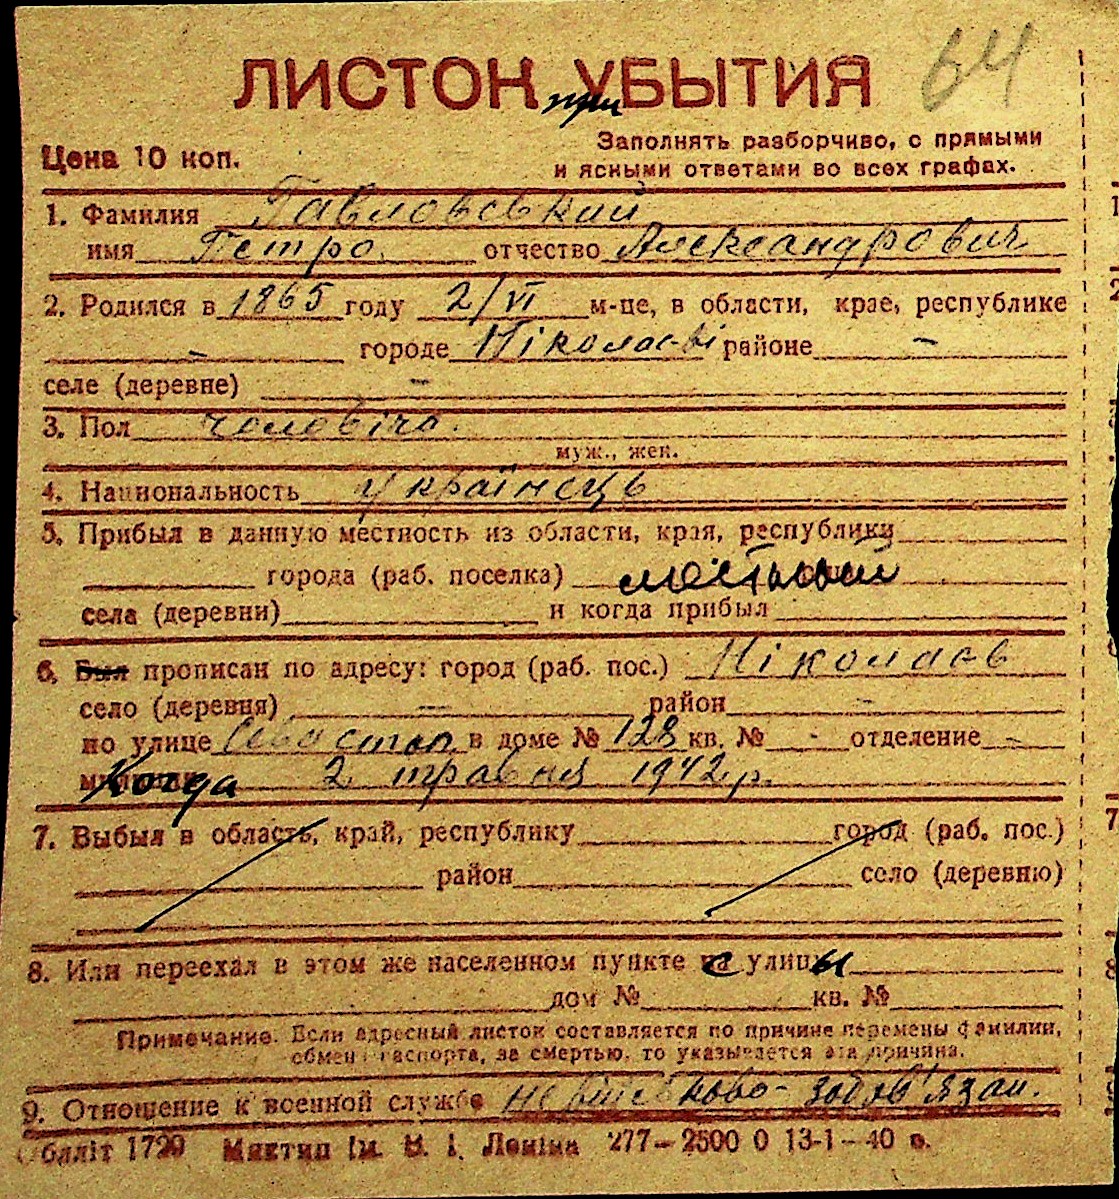 64
ЛИСТОК УБЫТИЯ
при
Цена 10 коп.
Заполнять разборчиво, с прямыми
и ясными ответами во всех графах.
1. Фамилия Павловський
имя Петро. отчество Александрович
2. Родился в 1865 году 2/VI м-це, в области, крае, республике
- городе Ніколаєві районе -
селе (деревне) -
3. Пол чоловіча.
муж., жен.
4. Национальность українець
5. Прибыл в данную местность из области, края, республики
города (раб. поселка) местный
села (деревни) и когда прибыл
6. Был прописан по адресу: город (раб. пос.) Ніколаєв
село (деревня) - район -
по улице Севастоп в доме № 128 кв. № - отделение -
Когда 2 травня 1942 р.
7. Выбыл в область, край, республику город (раб. пос.)
район село (деревню)
8. Или переехал в этом же населенном пункте с улицы
дом № кв. №
Примечание. Если адресный листок составляется по причине перемены фамилии,
обмен паспорта, за смертью, то указывается эта причина.
9. Отношение к военной службе не військово-зобов'язан.
Облліт 1729 Миктип ім. В. І. Леніна 277-2500 0 13-1-40 в.